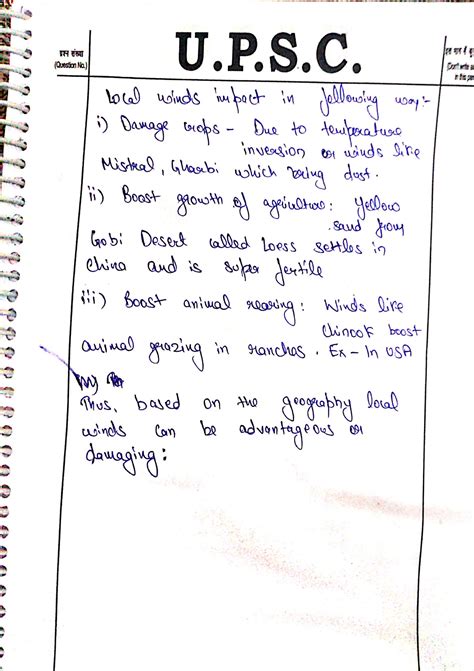 प्रश्न संख्या
(Question No.)
U.P.S.C.
इस भाग में कुछ
(Don't write
in this
Local winds impact in following way:-
i) Damage crops - Due to temperature
inversion or winds like
Mistral, Gharbi which bring dust.
ii) Boost growth of agriculture: Yellow
sand from
Gobi Desert called Loess settles in
China and is super fertile
iii) Boost animal rearing: Winds like
Chinook boost
animal grazing in ranchos. Ex - In USA
Thus, based on the geography local
winds can be advantageous or
damaging: